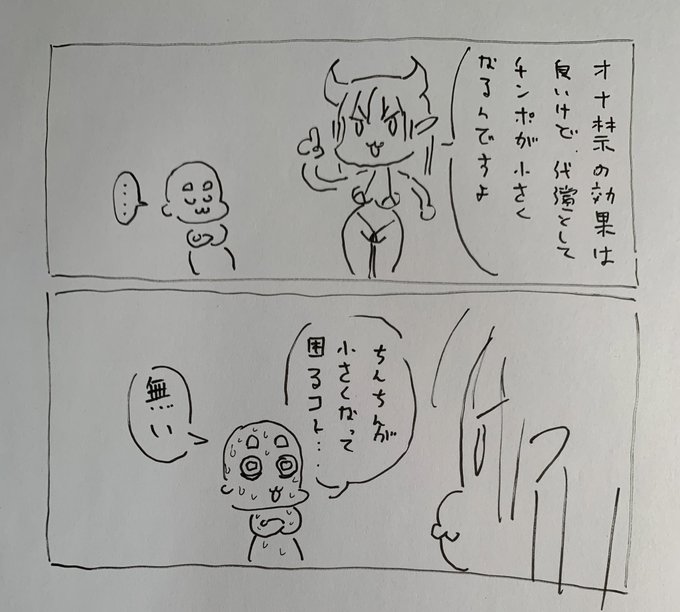 オナ禁の効果は
良いけど、代償として
チンポが小さく
なるんですよ
....
ちんちんが
小さくなって
困るコト...
無...い